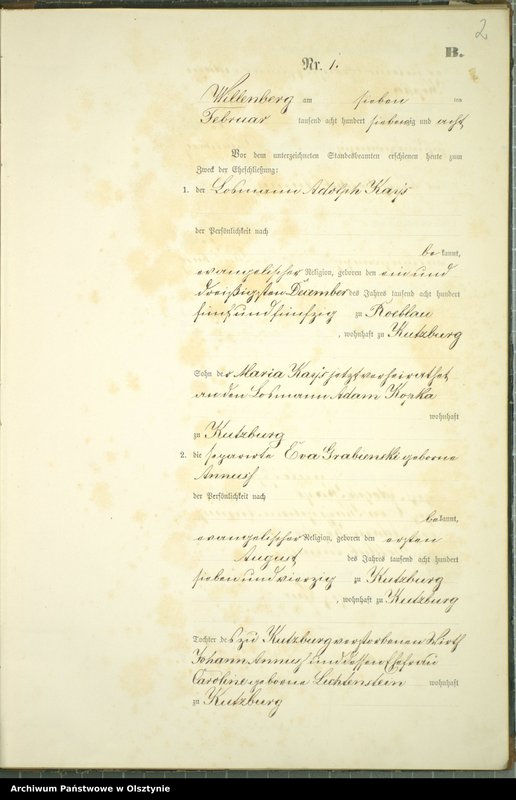 2
B.
Nr. 1.
Willenberg am sieben ten
Februar tausend acht hundert siebenzig und acht
Vor dem unterzeichneten Standesbeamten erschienen heute zum
Zweck der Eheschließung:
1. der Losmann Adolph Kays
der Persönlichkeit nach
be kannt,
evangelischer Religion, geboren den ein und
dreißigsten Dezember des Jahres tausend acht hundert
fünf und fünfzig zu Roeblau
, wohnhaft zu Kutzburg
Sohn der Maria Kays jetzt verheirathet
an den Losmann Adam Kopka
wohnhaft
zu Kutzburg
2. die separirte Eva Grabienski geborne
Annuß
der Persönlichkeit nach
be kannt,
evangelischer Religion, geboren den ersten
August des Jahres tausend acht hundert
sieben und vierzig zu Kutzburg
, wohnhaft zu Kutzburg
Tochter des zu Kutzburg verstorbenen Wirth
Johann Annuß und dessen Ehefrau
Caroline geborne Lichtenstein wohnhaft
zu Kutzburg
Archiwum Państwowe w Olsztynie